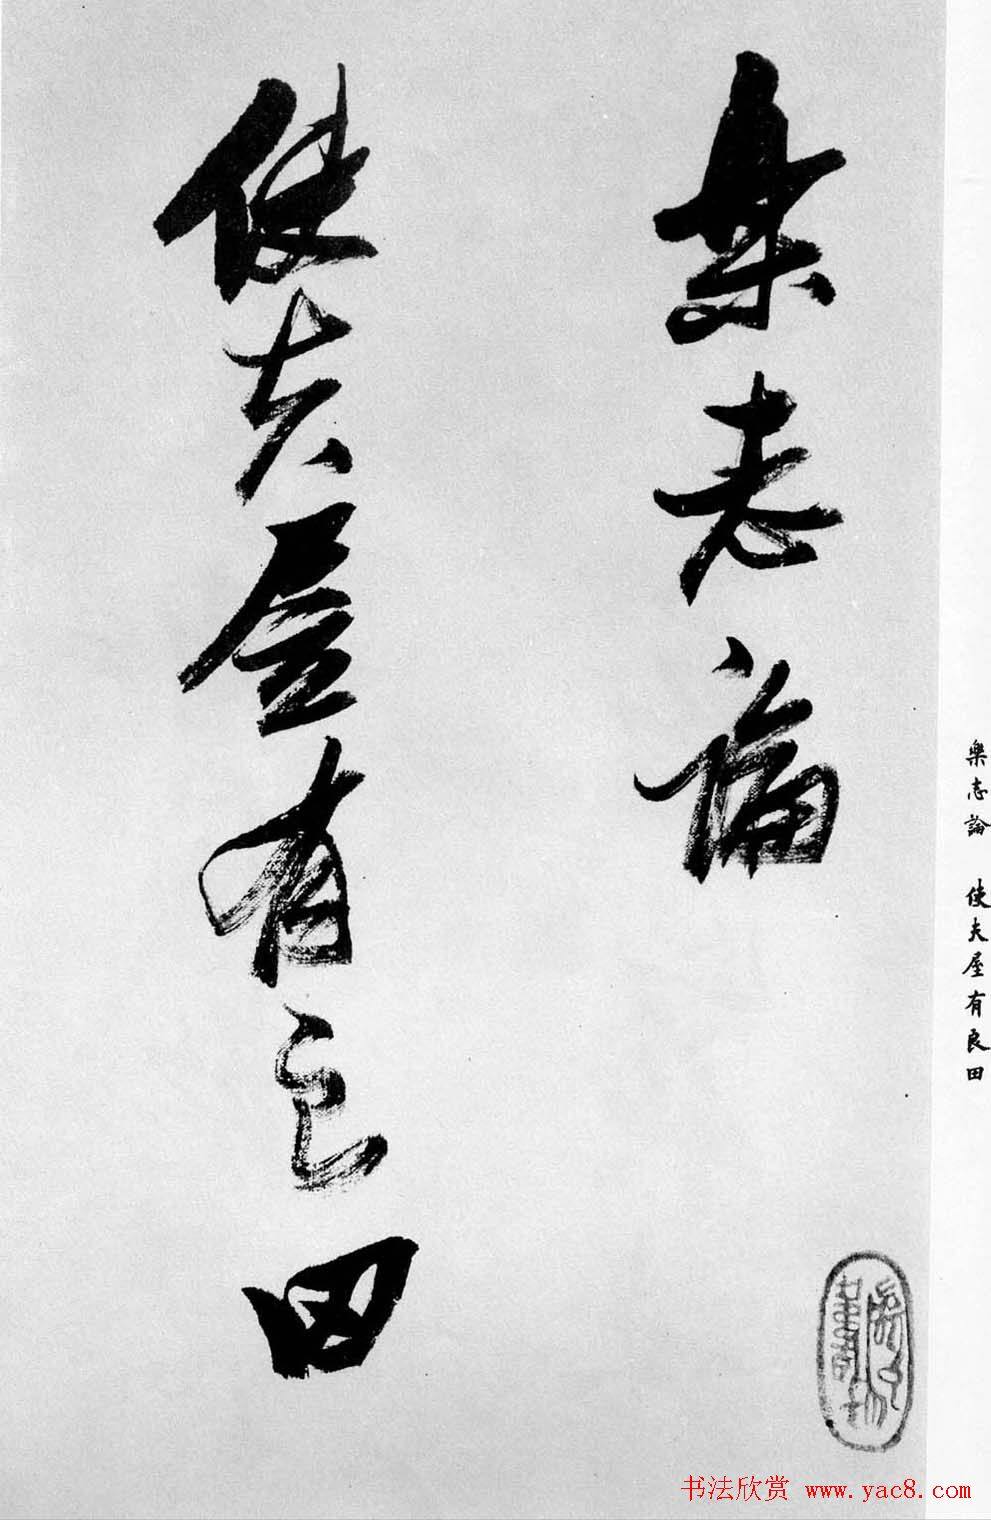 樂志論
使夫屋有良田
樂志論 使夫屋有良田
书法欣赏 www.yac8.com